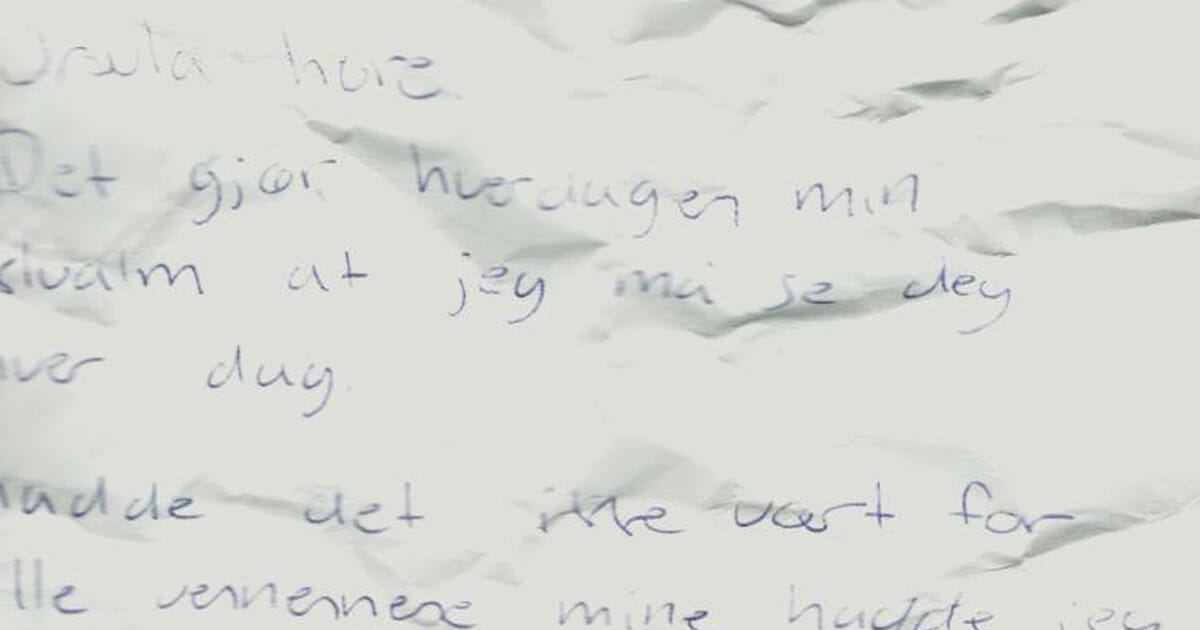 Ursula hore
Det gjør hverdagen min
kvalm at jeg må se deg
hver dag.
hadde det ikke vært for
alle vennennene mine hadde jeg